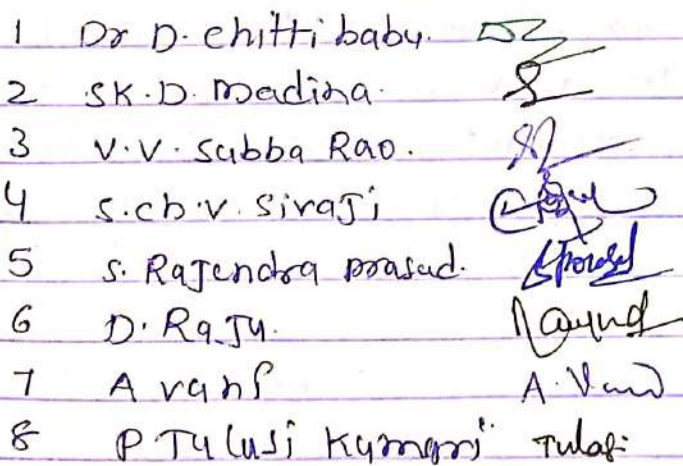 1 Dr D. chitti babu.
2 SK. D. Madina.
3 V.V. Subba Rao.
4 S.ch.V. Sivaji
5 S. Rajendra Prasad.
6 D. Raju.
7 A vani A. Vani
8 P Tulusi Kumari Tulasi